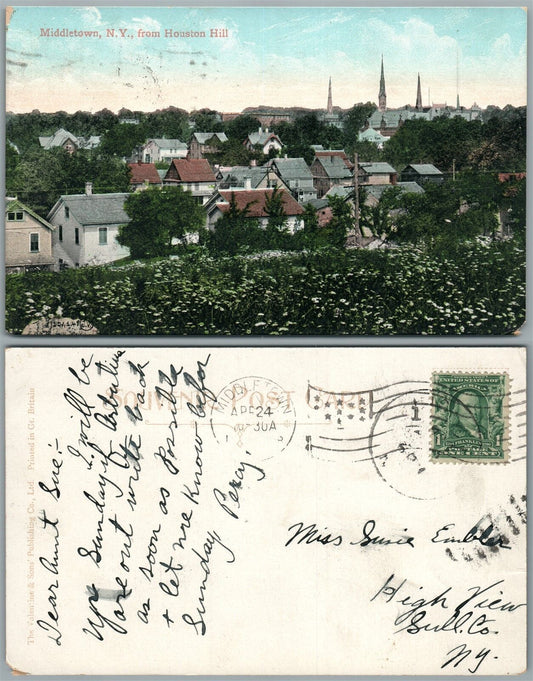 Middletown, N.Y., from Houston Hill
SOUVENIR POST CARD
The Valentine & Sons' Publishing Co., Ltd. Printed in Gt. Britain
MIDDLETOWN
APR 24
30A
UNITED STATES OF AMERICA
FRANKLIN
1
Dear Aunt Sue:-
I will be
up Sunday if Arbutus
are out write back
as soon as Possble
+ let me know befor
Sunday Percy,
Miss Susie Embler
High View
Sull. Co.
Ny.